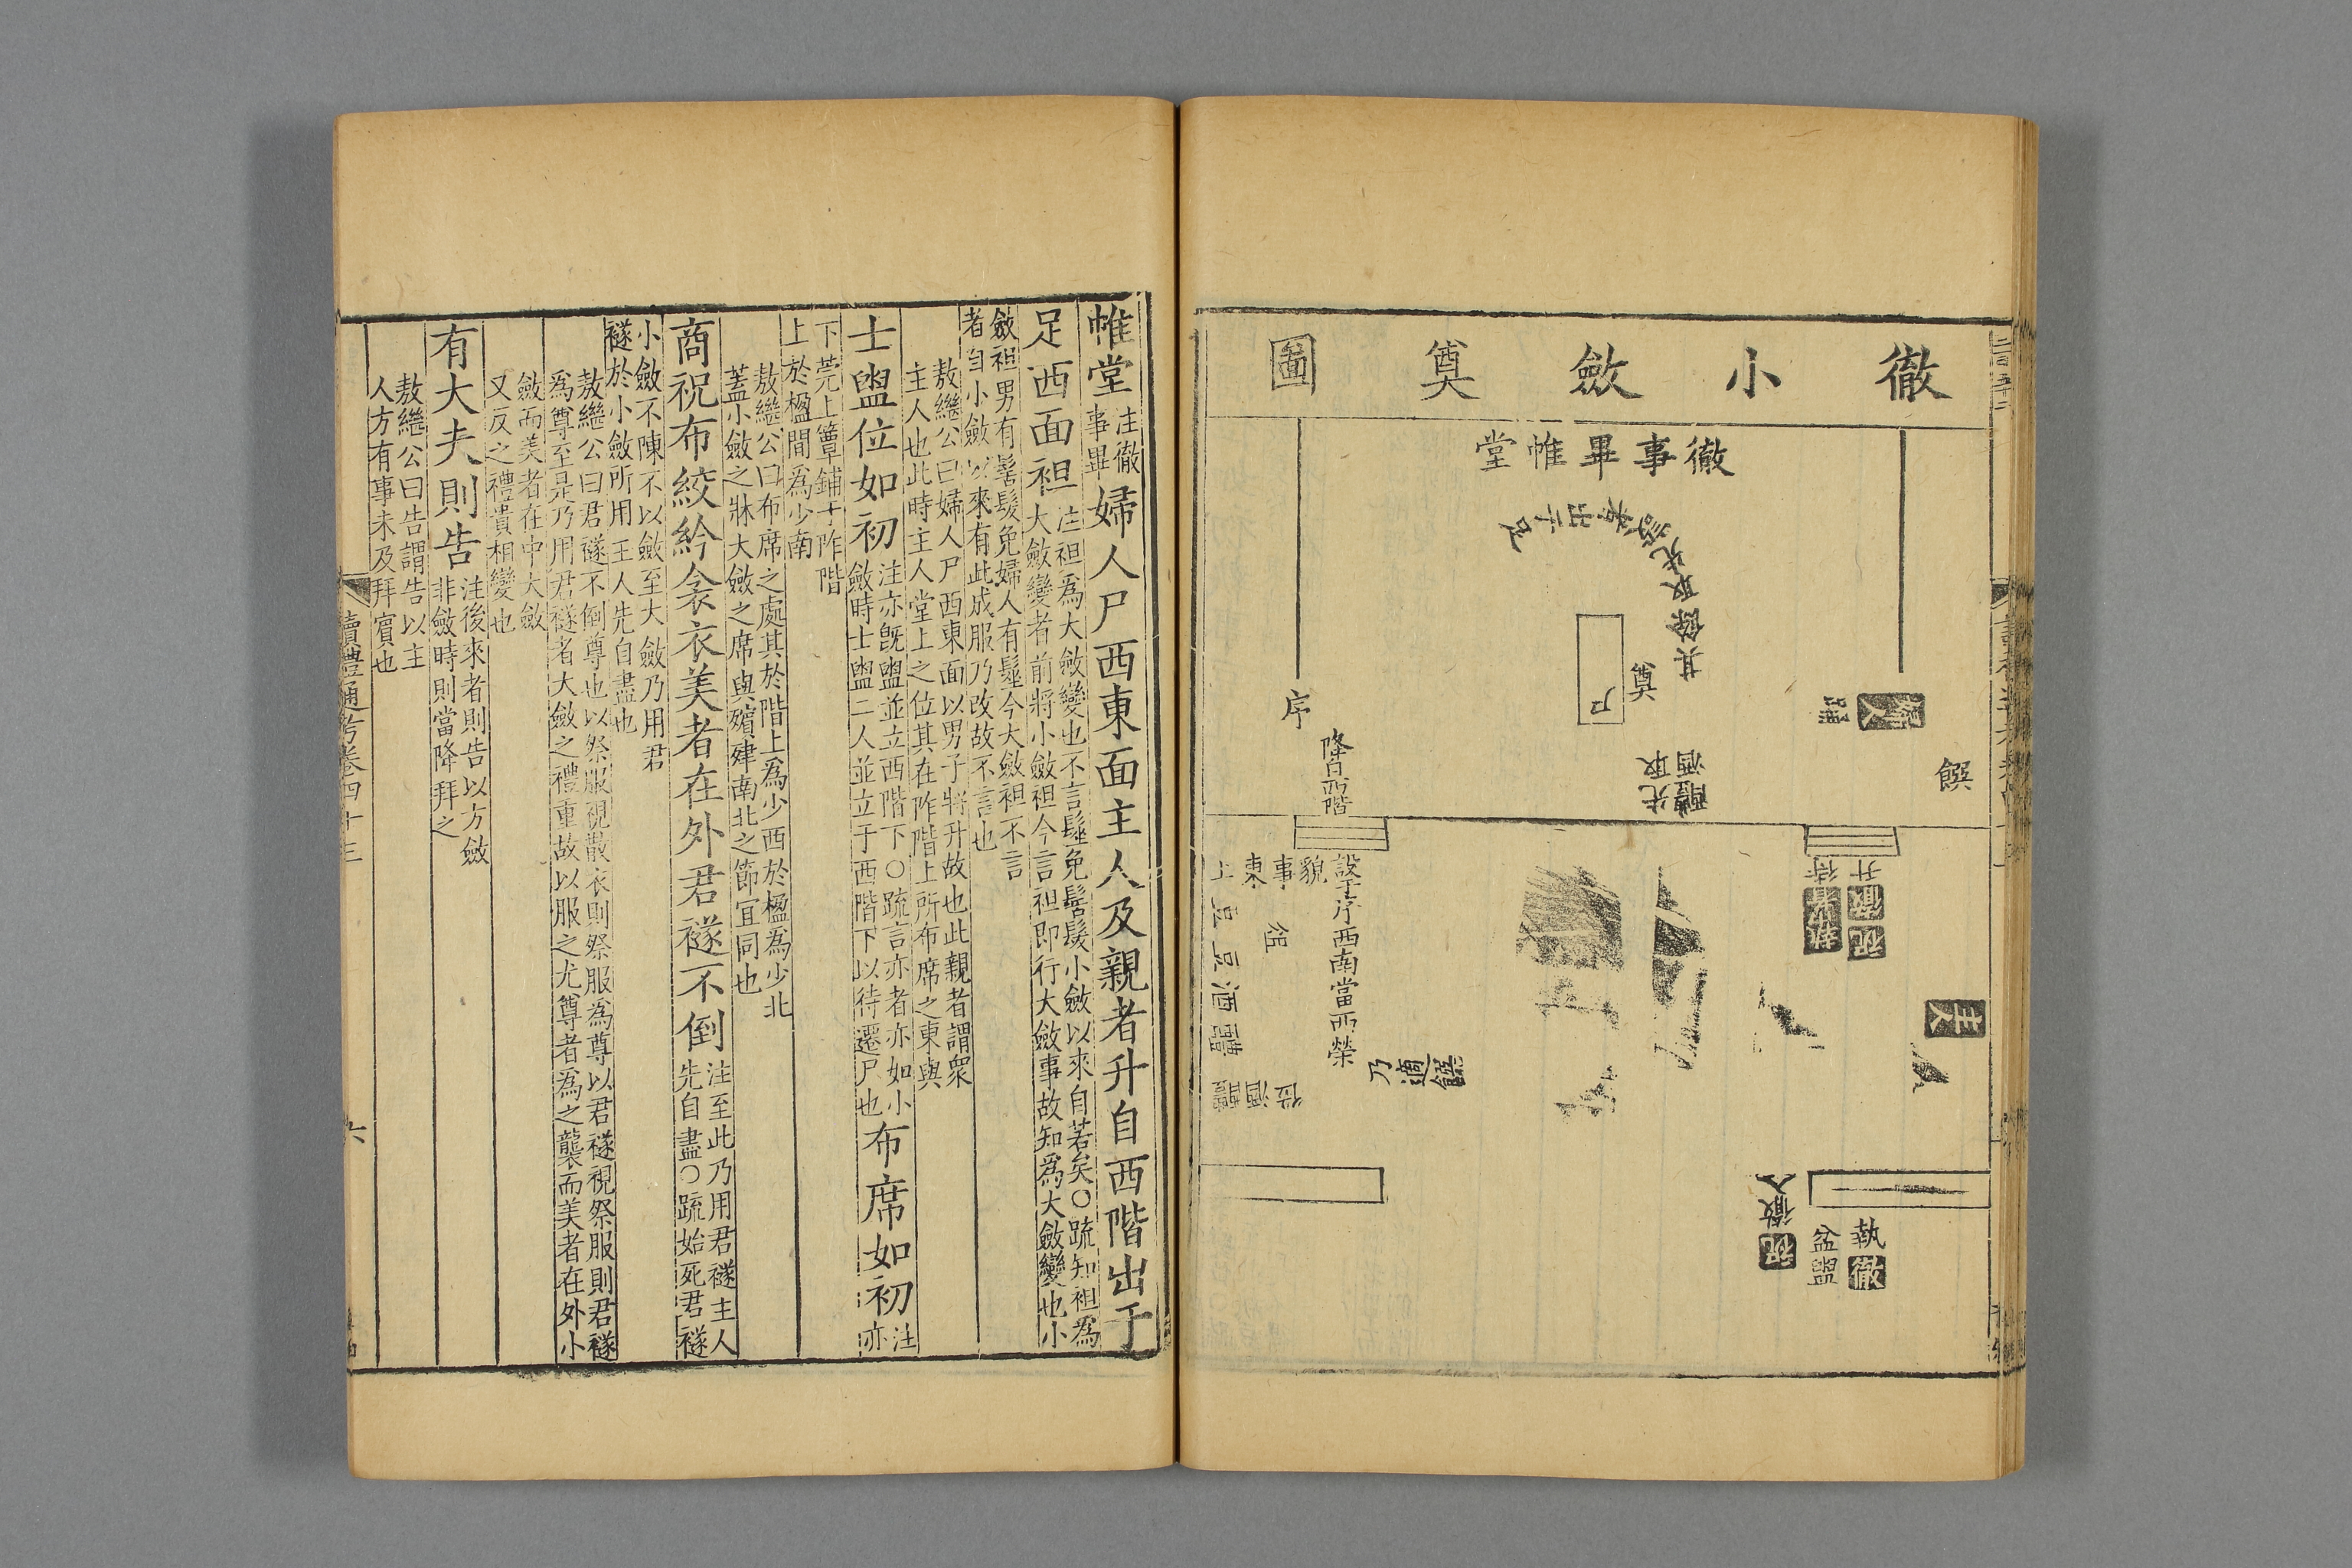 徹小斂奠圖
徹事畢帷堂
其餘取先
出于足
奠
尸
序
降自西階
饌
婦人
踊
醴酒
先取
祝徹升
執
待
主人
設于序西南當西榮
貌事東上
俎
豆豆酒醴
位酒醴
乃適饌
祝徹入
執徹
盆盥
帷堂注徹事畢婦人尸西東面主人及親者升自西階出于
足西面袒注袒爲大斂變也不言髽免髻髮小斂以來自若矣○疏知袒爲
大斂變者前將小斂袒今言袒即行大斂事故知爲大斂變也小
斂袒男有髻髮免婦人有髽今大斂袒不言
者自小斂以來有此成服乃改故不言也
敖繼公曰婦人尸西東面以男子將升故也此親者謂衆
主人也此時主人堂上之位其在阼階上所布席之東與
士盥位如初注亦旣盥並立西階下○疏言亦者亦如小
斂時士盥二人並立于西階下以待遷尸也布席如初注亦
下莞上簟鋪于阼階
上於楹間爲少南
敖繼公曰布席之處其於階上爲少西於楹爲少北
蓋小斂之牀大斂之席與殯肂南北之節宜同也
商祝布絞紟衾衣美者在外君襚不倒注至此乃用君襚主人
先自盡○疏始死君襚
小斂不陳不以斂至大斂乃用君
襚於小斂所用主人先自盡也
敖繼公曰君襚不倒尊也以祭服視散衣則祭服爲尊以君襚視祭服則君襚
爲尊至是乃用君襚者大斂之禮重故以服之尤尊者爲之襲而美者在外小
斂而美者在中大斂
又反之禮貴相變也
有大夫則告注後來者則告以方斂
非斂時則當降拜之
敖繼公曰告謂告以主
人方有事未及拜賓也
讀禮通考卷四十三
六